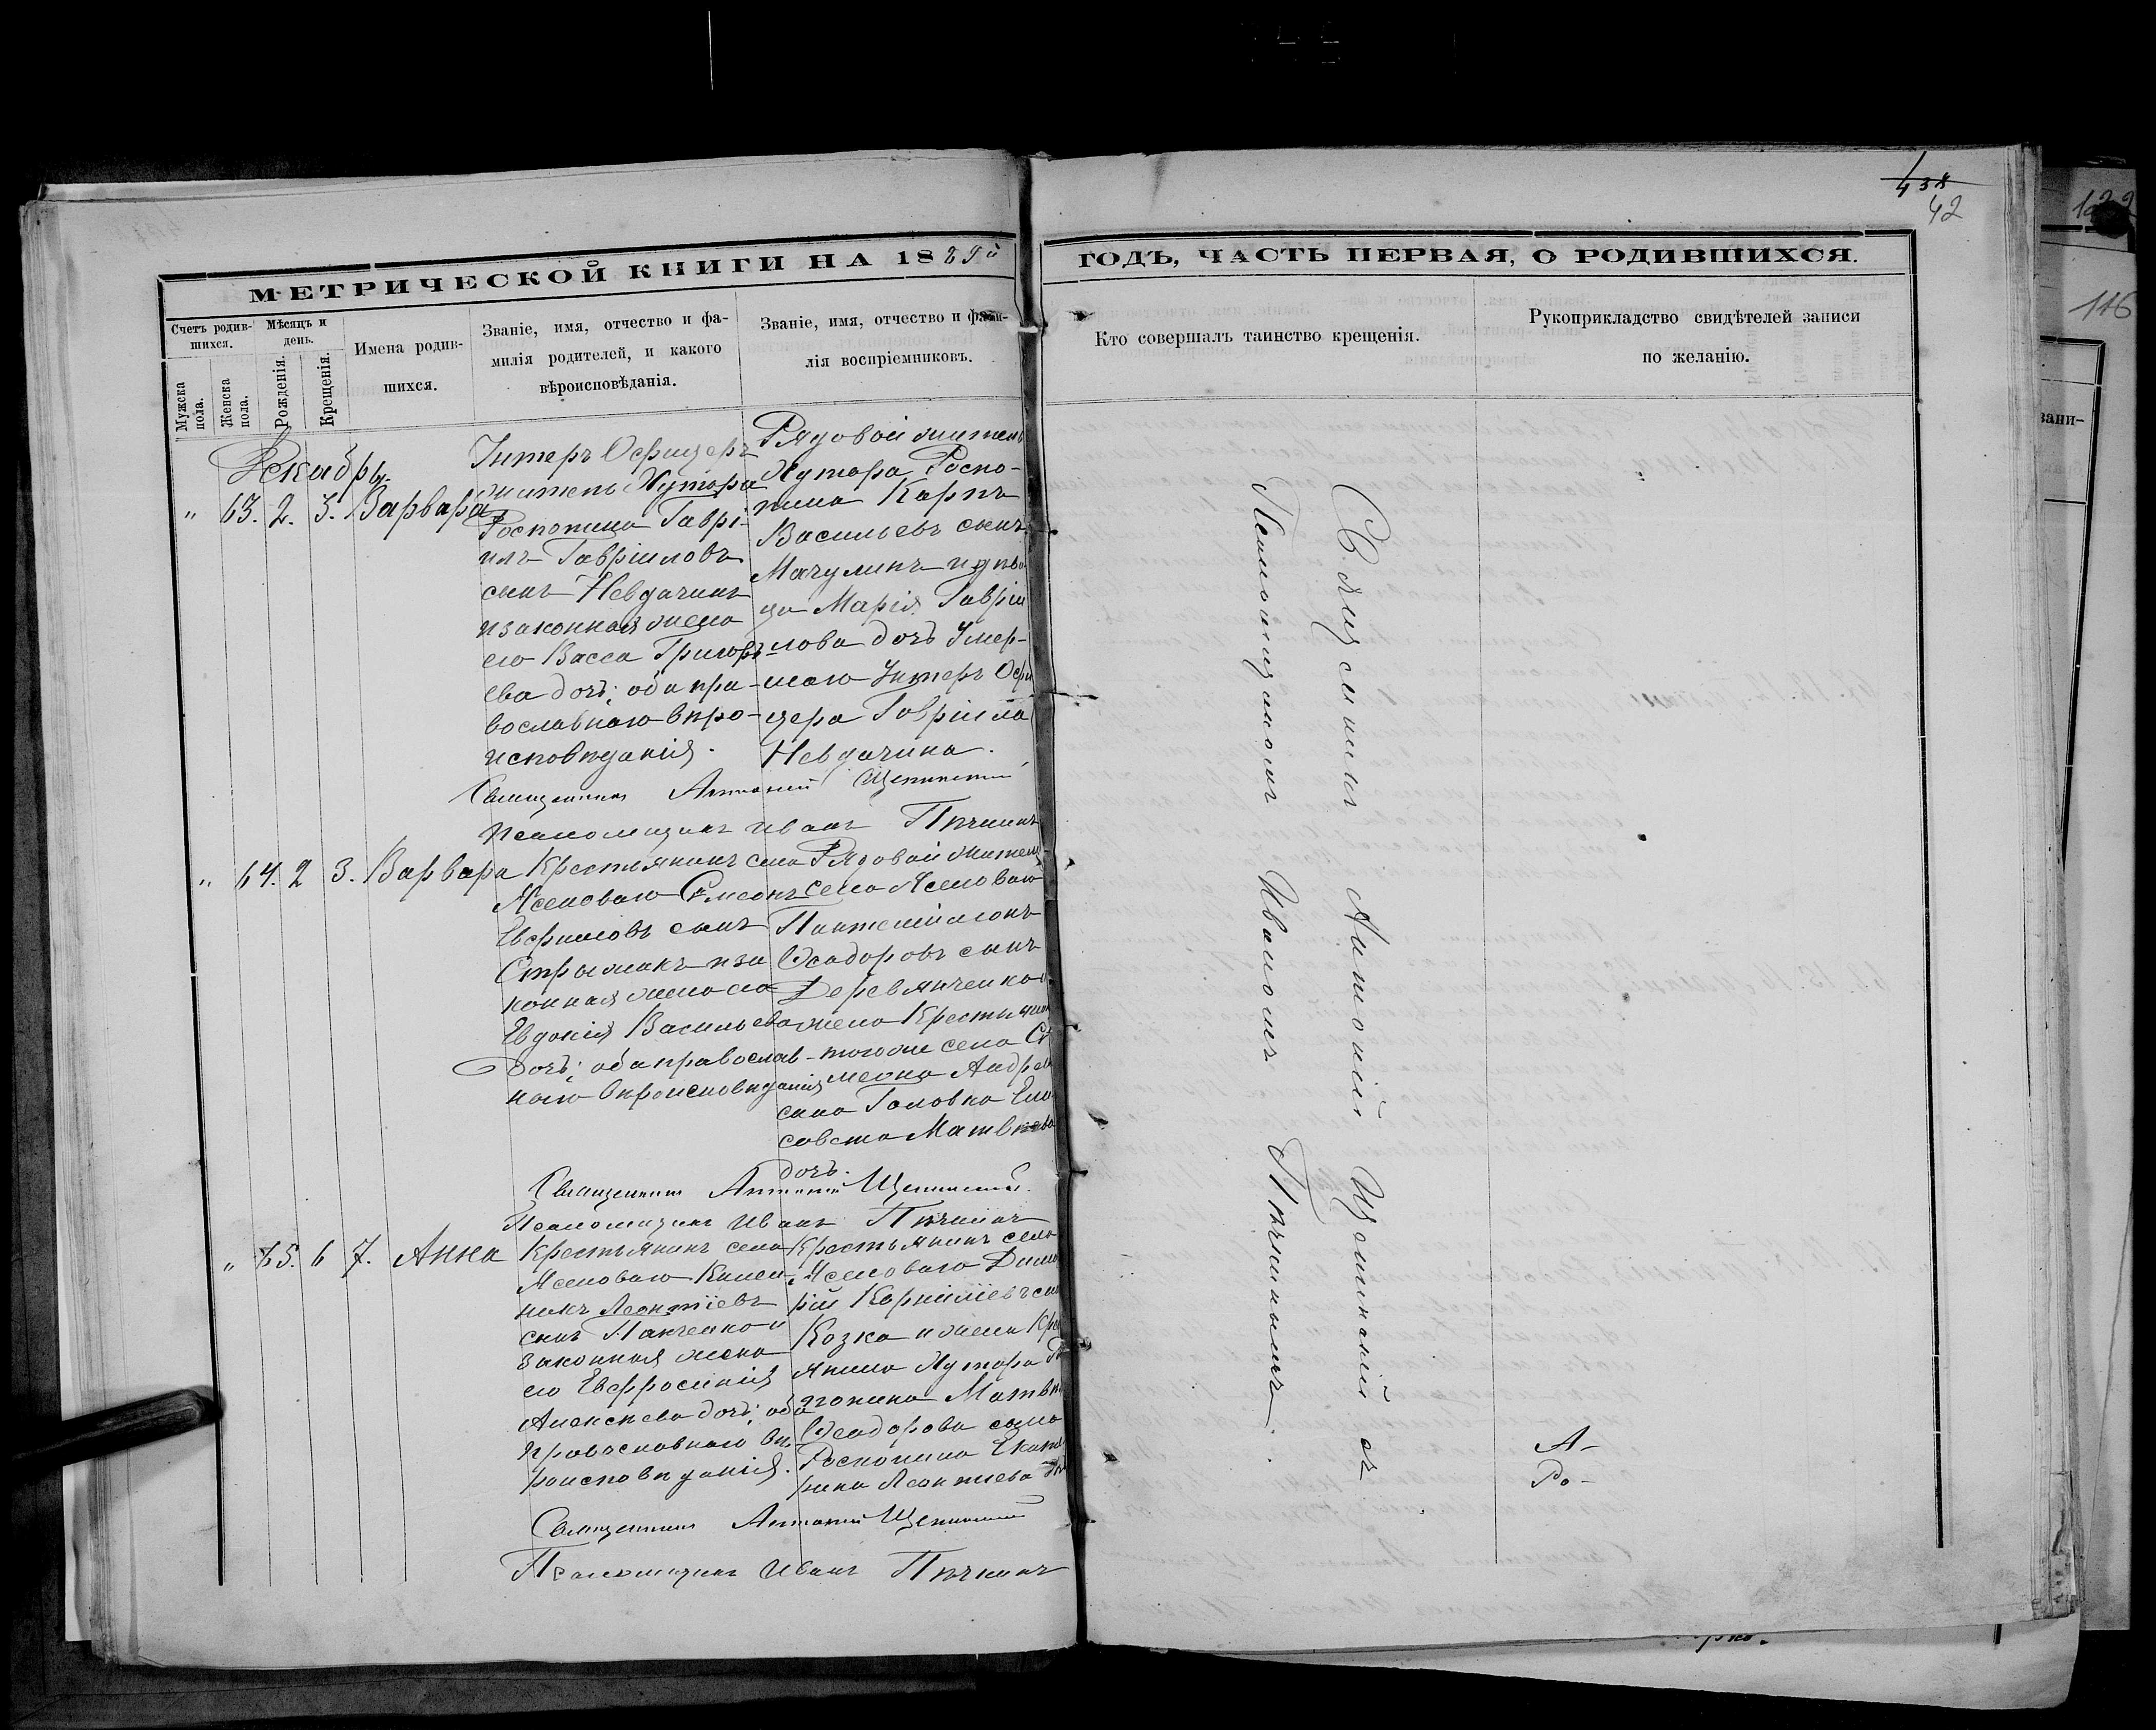 438
42
МЕТРИЧЕСКОЙ КНИГИ НА 1889й
ГОДЪ, ЧАСТЬ ПЕРВАЯ, О РОДИВШИХСЯ.
Счетъ родив-
шихся.
Мужска пола.
Женска пола.
Мѣсяцъ и
день.
Рожденія.
Крещенія.
Имена родив-
шихся.
Званіе, имя, отчество и фа-
милія родителей, и какого
вѣроисповѣданія.
Званіе, имя, отчество и фами-
лія воспріемниковъ.
Кто совершалъ таинство крещенія.
Рукоприкладство свидѣтелей записи
по желанію.
Декабрь
" 63. 2. 3. Варвара
Унтеръ Офицеръ
житель Хутора
Роспопина Гаврі-
илъ Гавріиловъ
сынъ Невдачинъ
и законная жена
его Васса Григорь-
ева дочь; оба пра-
вославнаго вѣро-
исповѣданія.
Рядовой житель
Хутора Роспо-
пина Карпъ
Васильевъ сынъ
Мачулинъ и дѣви
ца Марія Гавріи
лова дочь Умер-
шаго Унтеръ Офи
цера Гавріила
Невдачина.
Священникъ Антоній Щепинскій
Псаломщикъ Иванъ Пѣчкинъ
" 64. 2 3. Варвара
Крестьянинъ села
Ясеноваго Симеонъ
Евфимовъ сынъ
Стрыжакъ и за
конная жена его
Евдокія Васильева
дочь; оба православ-
наго вѣроисповѣданія
Рядовой житель
села Ясеноваго
Пантелиимонъ
Ѳеодоровъ сынъ
Деревянченко и
жена Крестьянина
того же села Си
меона Андреева
сына Головка Ели
савета Матвѣева
дочь.
Священникъ Антоній Щепинскій
Псаломщикъ Иванъ Пѣчкинъ
" 65. 6 7. Анна
Крестьянинъ села
Ясеноваго
никъ Леонтіевъ
сынъ Панченко и
законная жена
его Евфросинія
Алексѣева дочь; оба
православнаго вѣ-
роисповѣданія.
Крестьянинъ села
Ясеноваго Дими
рій Корниліевъ сын
Козка и жена Крес
янина Хутора Ро
попина Матвѣя
Ѳеодорова сына
Роспопина Екате
рина Леонтиева
Священникъ Антоній Щепинскій
Псаломщикъ Иванъ Пѣчкинъ
Священникъ Антоній Щепинскій съ
Псаломщикомъ Иваномъ Пѣчкинымъ.
А-
Ро-
122
116
зани-